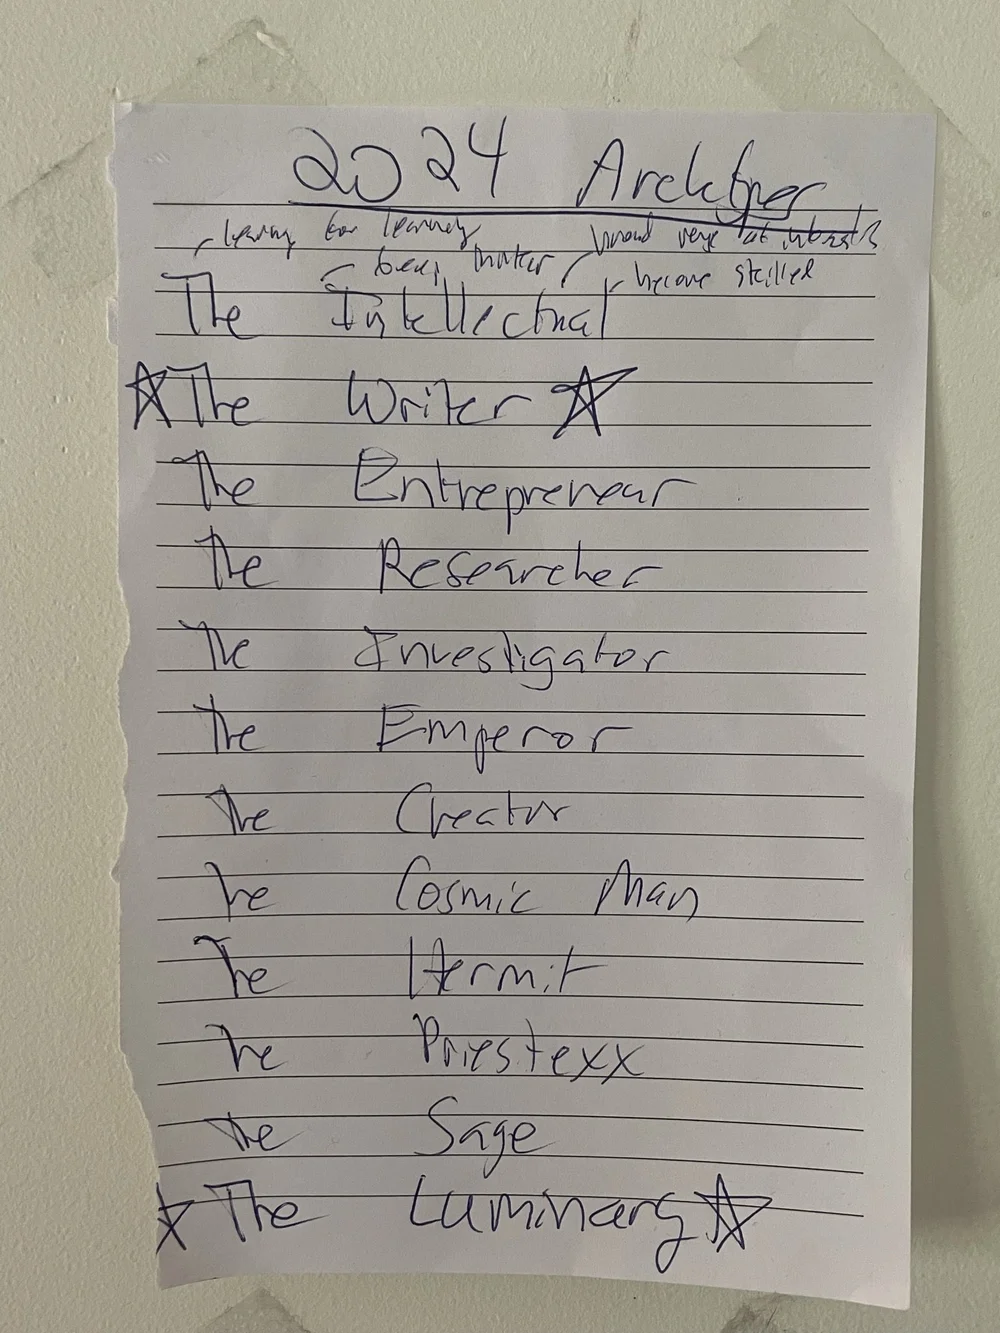 2024 Archetypes
learning for learning broad range of interests
being thinker become skilled
The Intellectual
☆ The Writer ☆
The Entrepreneur
The Researcher
The Investigator
The Emperor
The Creator
The Cosmic Man
The Hermit
The Priestexx
The Sage
☆ The Luminary ☆